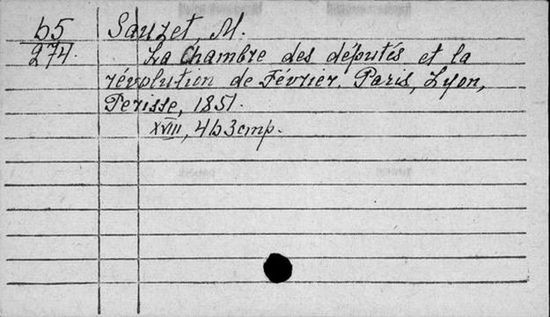 b5
274.
Sauzet, M.
La Chambre des députés et la
révolution de Février. Paris, Lyon,
Perisse, 1851.
XVIII, 463 стр.